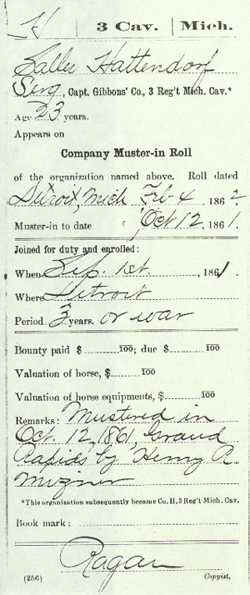 H | 3 Cav. | Mich.
Sallee Hattendorf
Serg, Capt. Gibbons' Co., 3 Reg't Mich. Cav.*
Age 23 years.
Appears on
Company Muster-in Roll
of the organization named above. Roll dated
Detroit, Mich Feb 4, 1862
Muster-in to date Oct 12, 1861.
Joined for duty and enrolled:
When Sep. 1st, 1861.
Where Detroit
Period 3 years. or war
Bounty paid $ 100; due $ 100
Valuation of horse, $ 100
Valuation of horse equipments, $ 100
Remarks: Mustered in
Oct. 12, 1861, Grand
Rapids by Henry R.
Mizner
*This organization subsequently became Co. H, 3 Reg't Mich. Cav.
Book mark:
Ragan
(356) Copyist.